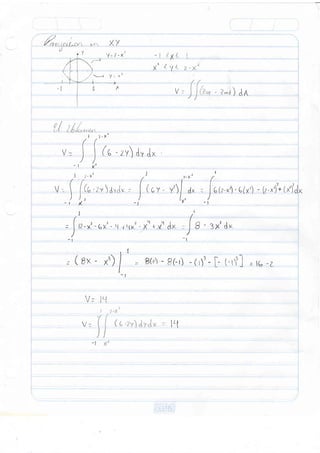 Proyección en XY
Y
y=2-x²
-1 ≤ x ≤ 1
x² ≤ y ≤ 2-x²
y=x²
-1 1 X
V = ∫∫ ( ) dA
El Volumen
V = ∫₋₁¹ ∫ₓ²^2-x² (6 - 2y) dy dx
V = ∫₋₁¹ ∫ₓ²^2-x² (6-2y) dy dx = ∫₋₁¹ (6y - y²) |ₓ²^2-x² dx = ∫₋₁¹ 6(2-x²) - 6(x²) - (2-x²)² + (x²)² dx
= ∫₋₁¹ 12-x²-6x²-4+4x²-x⁴+x⁴ dx = ∫₋₁¹ 8 - 3x² dx
= (8x - x³) |₋₁¹ = 8(1) - 8(-1) - (1)³ - [-(-1)³] = 16 - 2
V = 14
V = ∫₋₁¹ ∫ₓ²^2-x² (6-2y) dy dx = 14